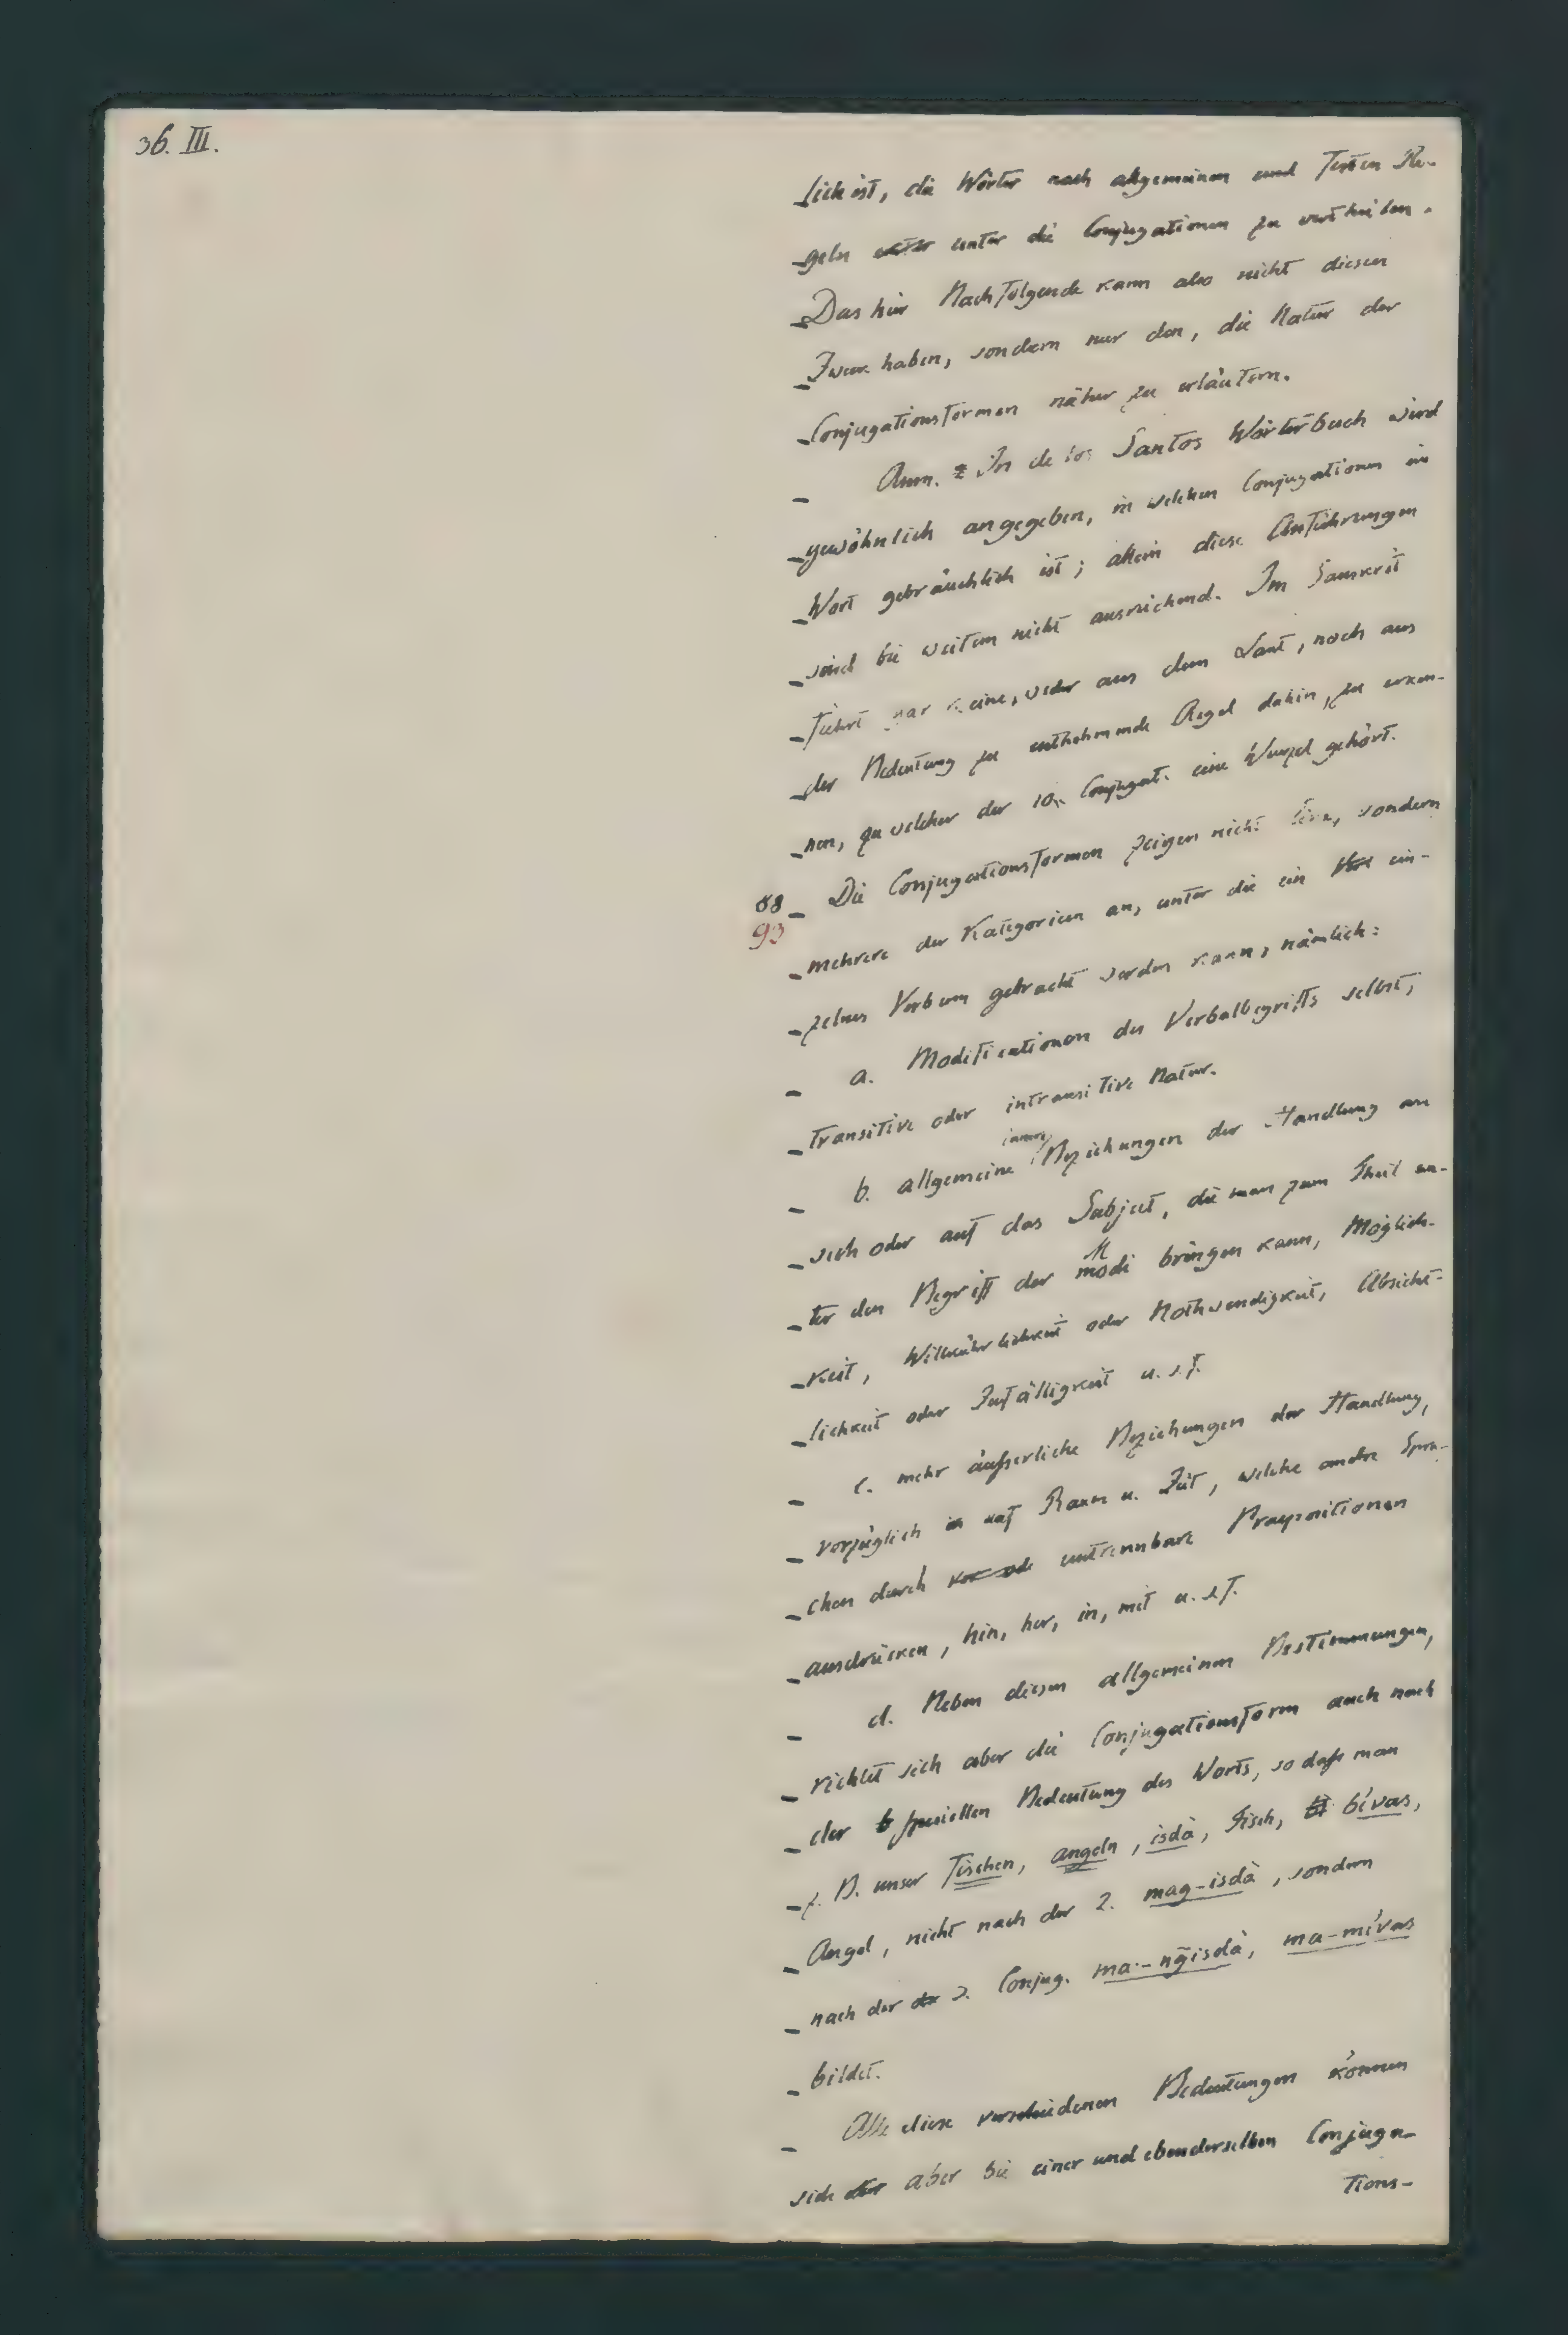 36. III.
lich ist, die Wörter nach allgemeinen und festen Re-
geln unter die Conjugationen zu vertheilen.
Das hier Nachfolgende kann also nicht diesen
Zweck haben, sondern nur den, die Natur der
Conjugationsformen näher zu erläutern.
Anm. In de los Santos Wörterbuch wird
gewöhnlich angegeben, in welchen Conjugationen ein
Wort gebräuchlich ist; allein diese Anführungen
sind bei weitem nicht ausreichend. Im Sanskrit
führt gar keine, weder aus dem Laut, noch aus
der Bedeutung zu entnehmende Regel dahin, zu erken-
nen, zu welcher der 10. Conjugat. eine Wurzel gehört.
88
93
Die Conjugationsformen zeigen nicht Eine, sondern
mehrere der Kategorieen an, unter die ein ein-
zelnes Verbum gebracht werden kann, nämlich:
a. Modificationen des Verbalbegriffs selbst,
transitive oder intransitive Natur.
innre
b. allgemeine Beziehungen der Handlung an
sich oder auf das Subject, die man zum Theil un-
ter den Begriff der Modi bringen kann, Möglich-
keit, Willkührlichkeit oder Nothwendigkeit, Absicht-
lichkeit oder Zufälligkeit u. s. f.
c. mehr äußerliche Beziehungen der Handlung,
vorzüglich auf Raum u. Zeit, welche andre Spra-
chen durch untrennbare Praepositionen
ausdrücken, hin, her, in, mit u. s. f.
d. Neben diesen allgemeinen Bestimmungen,
richtet sich aber die Conjugationsform auch nach
der speciellen Bedeutung des Worts, so daß man
z. B. unser fischen, angeln, isdà, Fisch, bívas,
Angel, nicht nach der 2. mag-isdà, sondern
nach der 3. Conjug. ma-ng̃isdà, ma-mívas
bildet.
Alle diese verschiedenen Bedeutungen können
sich aber bei einer und ebenderselben Conjuga-
tions-